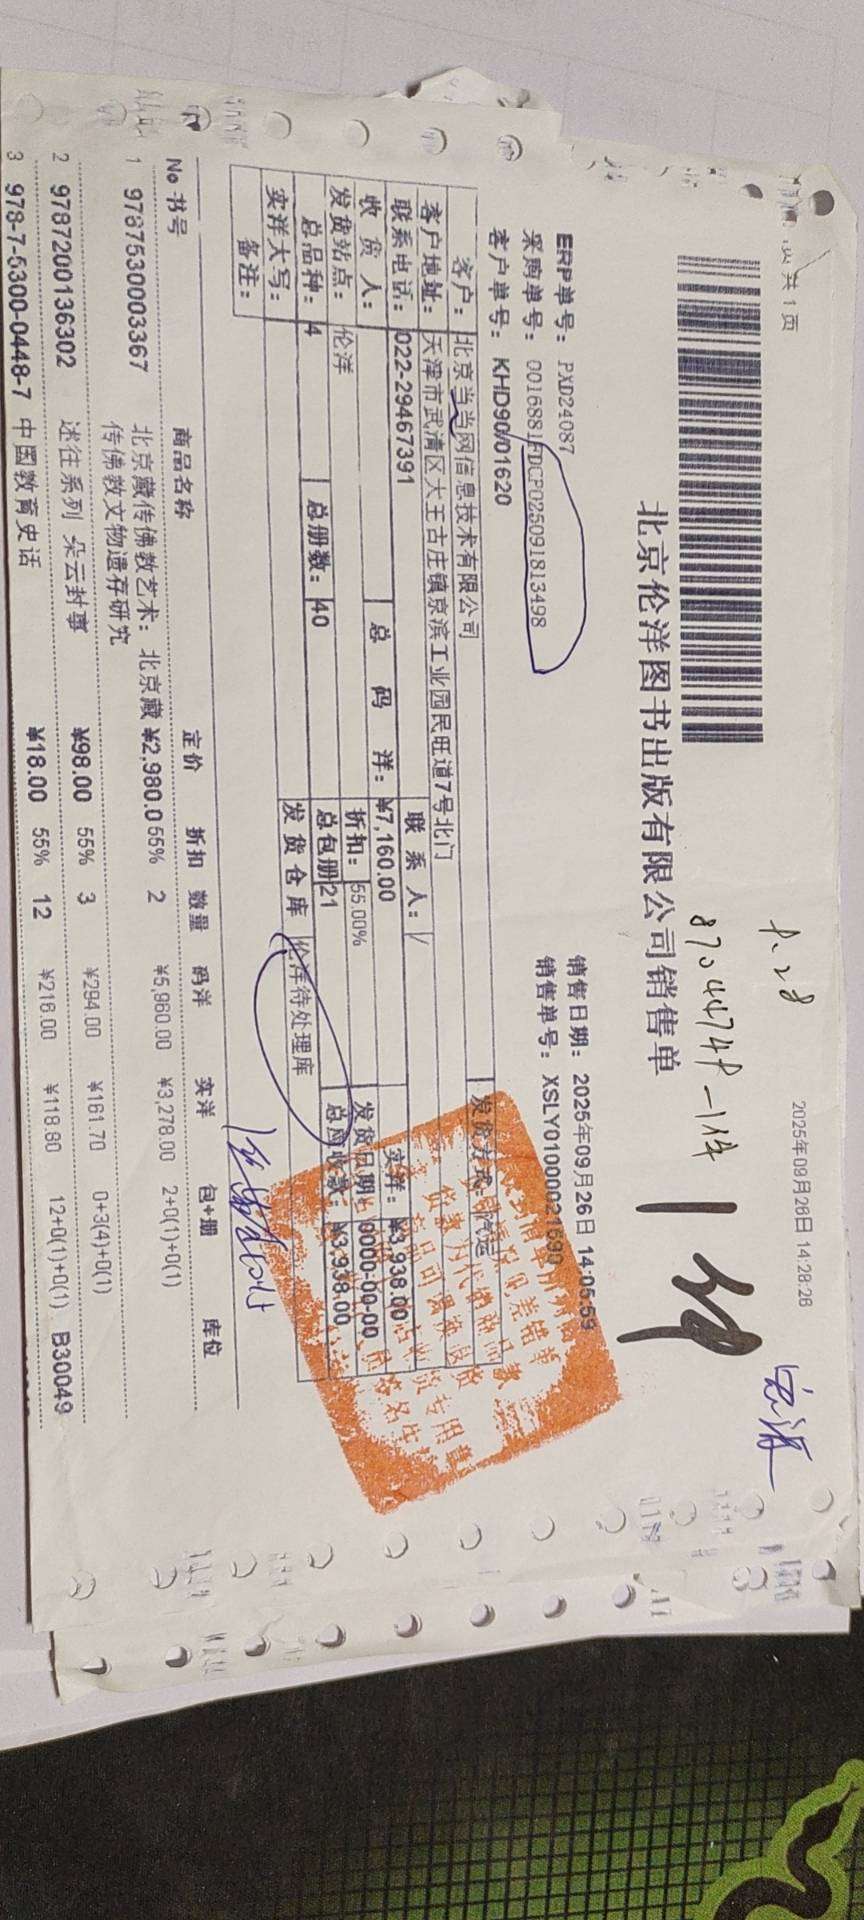 页 共 1 页
2025年09月26日 14:28:26
P.28
8704474P-1件
北京伦洋图书出版有限公司销售单
ERP单号： PXD24087
销售日期： 2025年09月26日 14:05:59
采购单号： 0016881FDCP025091813498
销售单号： XSLY01000021590
客户单号： KHD90/01620
客户： 北京当当网信息技术有限公司 发货方式： 汽运
客户地址： 天津市武清区大王古庄镇京滨工业园民旺道7号北门
联系电话： 022-29467391 联系人： /
收货人： 总码洋： ¥7,160.00 实洋： ¥3,938.00
发货站点： 伦洋 折扣： 55.00% 发货日期： 0000-00-00
总品种： 4 总册数： 40 总包册 21 总应收款： ¥3,938.00
实洋大写： 发货仓库 伦洋待处理库
备注：
No 书号 商品名称 定价 折扣 数量 码洋 实洋 包+册 库位
1 9787530003367 北京藏传佛教艺术：北京藏 ¥2,980.0 55% 2 ¥5,960.00 ¥3,278.00 2+0(1)+0(1)
传佛教文物遗存研究
2 9787200136302 述往系列 朵云封事 ¥98.00 55% 3 ¥294.00 ¥161.70 0+3(4)+0(1)
3 978-7-5300-0448-7 中国教育史话 ¥18.00 55% 12 ¥216.00 ¥118.80 12+0(1)+0(1) B30049